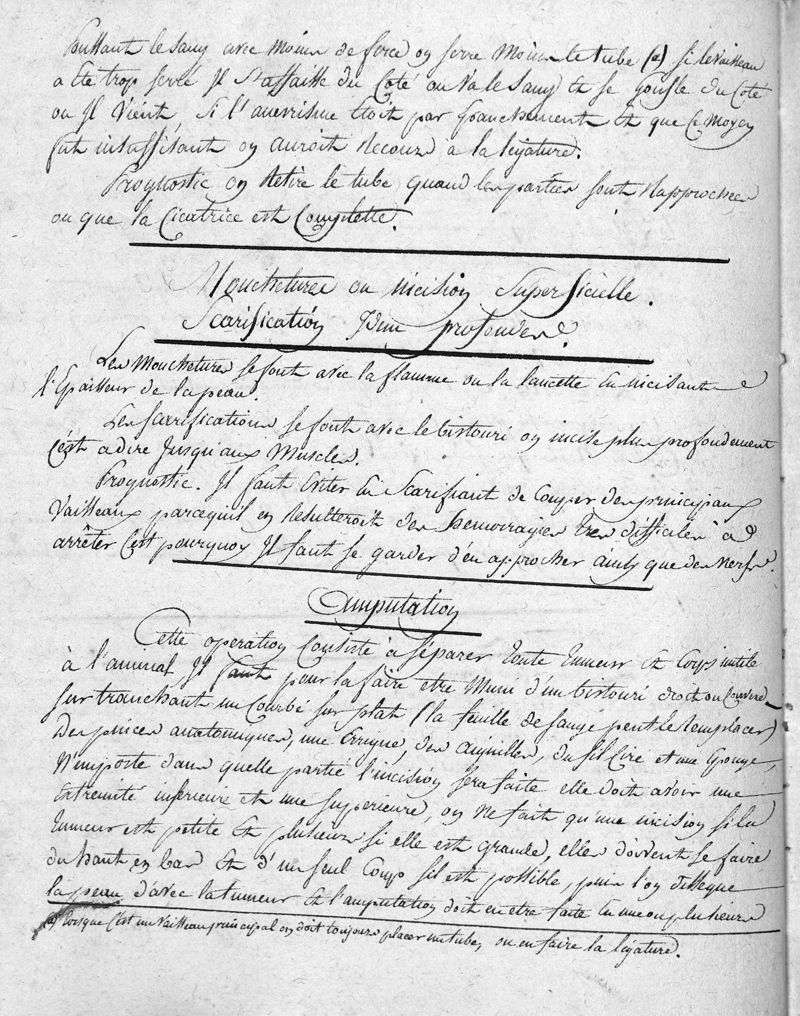 Poussant le sang avec moins de force on serre moins le tube (a) si le vaisseau
a été trop serré Il s'affaisse du Coté ou va le sang et se gonfle du Coté
ou Il vient. Si l'anevrisme étoit par épanchement et que ce moyen
fut insuffisant on auroit recours a la ligature.
Prognostic on retire le tube quand les parties sont rapprochées
ou que la Cicatrice est Complette.
Mouchetures ou incision Superficielle.
Scarification plus profondes.
Les Mouchetures se font avec la flamme ou la lancette en incisant
l'Epaisseur de la peau.
Les scarifications se font avec le bistouri on incise plus profondement
C'est a dire Jusqu'aux Muscles.
Prognostic. Il faut eviter en Scarifiant de Couper des principaux
Vaisseaux parcequ'il en resulteroit des hemorragies tres difficiles à
arrêter C'est pourquoy Il faut se garder d'en approcher ainsy que des Nerfs.
Amputation
Cette operation Consiste à séparer toute tumeur et Corps inutile
à l'animal Il faut pour la faire etre Muni d'un bistouri droit ou
sur tranchant un Courbé sur plat (la feuille de sauge peut le remplacer)
des pinces anatomiques, une Errigne, des aiguilles, du fil Ciré et une Eponge,
N'importe dans quelle partie l'incision sera faite elle doit avoir une
Extremité inferieure et une Superieure, on ne fait qu'une incision si la
tumeur est petite et plusieurs si elle est grande, elles doivent se faire
du haut en bas et d'un seul Coup s'il est possible, puis l'on disseque
la peau d'avec la tumeur et l'amputation doit en etre faite en une ou plusieurs
(a) lorsque C'est un Vaisseau principal on doit toujours placer un tube, ou en faire la ligature.